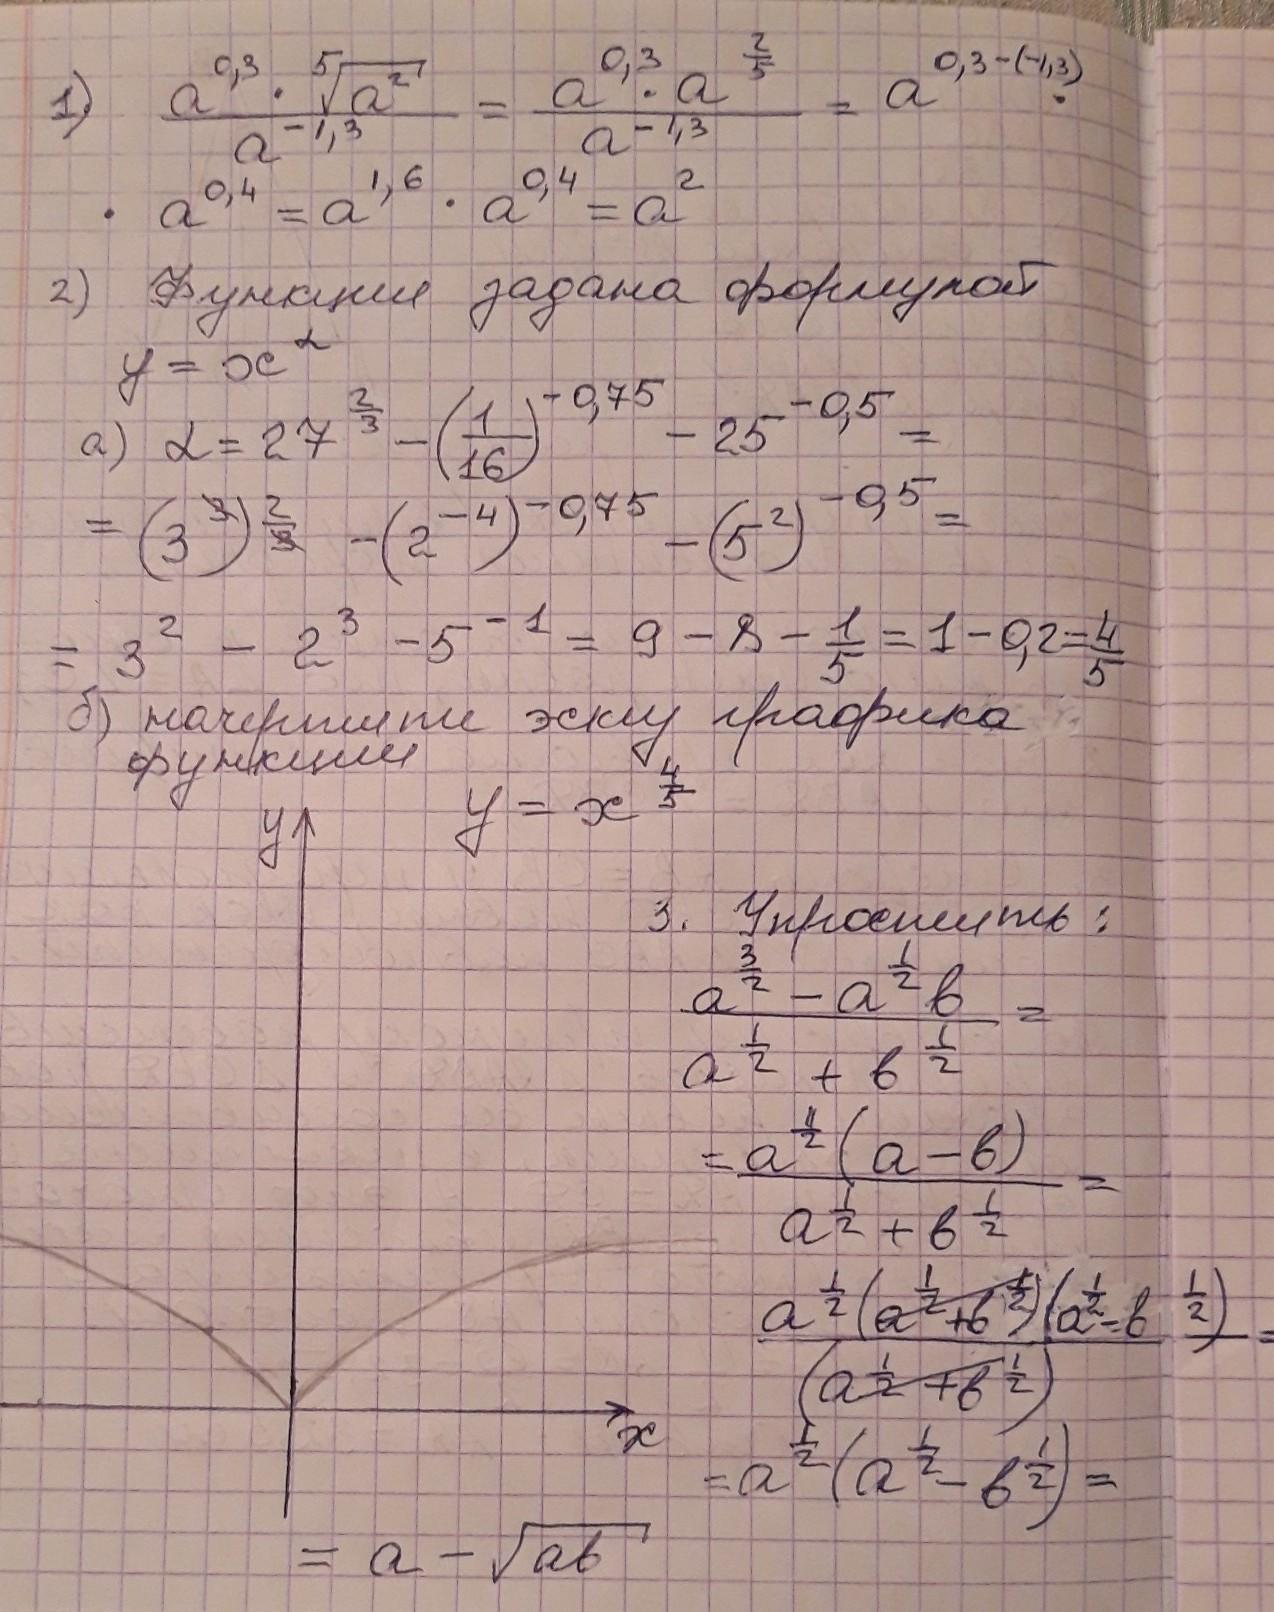 1) \frac{a^{0,3} · \sqrt[5]{a^2}}{a^{-1,3}} = \frac{a^{0,3} · a^{\frac{2}{5}}}{a^{-1,3}} = a^{0,3-(-1,3)} ·
· a^{0,4} = a^{1,6} · a^{0,4} = a^2
2) Функция задана формулой
y = x^α
а) α = 27^{\frac{2}{3}} - (\frac{1}{16})^{-0,75} - 25^{-0,5} =
= (3^3)^{\frac{2}{3}} - (2^{-4})^{-0,75} - (5^2)^{-0,5} =
= 3^2 - 2^3 - 5^{-1} = 9 - 8 - \frac{1}{5} = 1 - 0,2 = \frac{4}{5}
б) начертите эскиз графика
функции
y = x^{\frac{4}{5}}
y
x
3. Упростить:
\frac{a^{\frac{3}{2}} - a^{\frac{1}{2}} b}{a^{\frac{1}{2}} + b^{\frac{1}{2}}} =
= \frac{a^{\frac{1}{2}} (a - b)}{a^{\frac{1}{2}} + b^{\frac{1}{2}}} =
\frac{a^{\frac{1}{2}} (a^{\frac{1}{2}} + b^{\frac{1}{2}}) (a^{\frac{1}{2}} - b^{\frac{1}{2}})}{(a^{\frac{1}{2}} + b^{\frac{1}{2}})} =
= a^{\frac{1}{2}} (a^{\frac{1}{2}} - b^{\frac{1}{2}}) =
= a - \sqrt{ab}